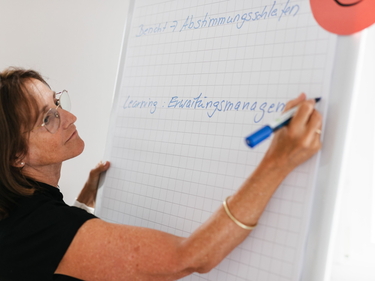 Bericht → Abstimmungsschleifen
Learning: Erwartungsmanagemen